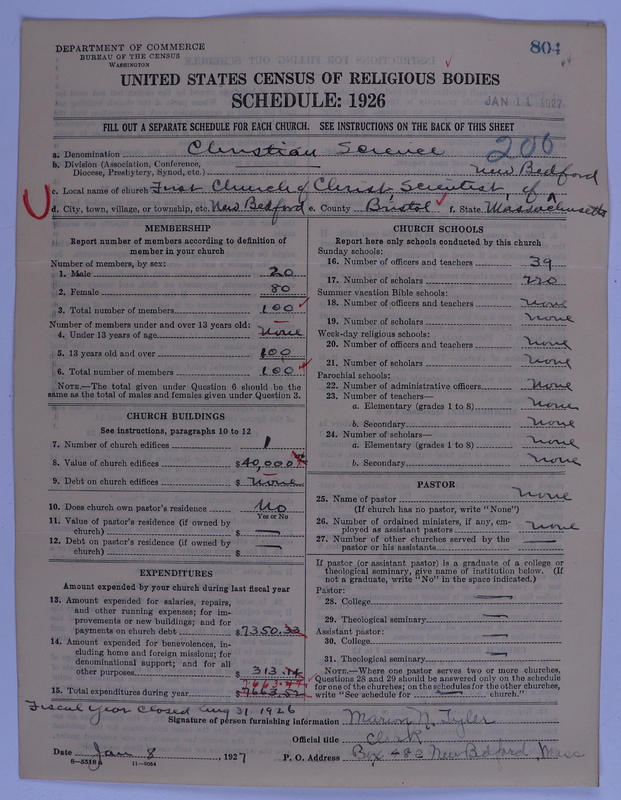 DEPARTMENT OF COMMERCE
BUREAU OF THE CENSUS
WASHINGTON
804
UNITED STATES CENSUS OF RELIGIOUS BODIES
SCHEDULE: 1926
JAN 11 1927
FILL OUT A SEPARATE SCHEDULE FOR EACH CHURCH. SEE INSTRUCTIONS ON THE BACK OF THIS SHEET
206
a. Denomination Christian Science
b. Division (Association, Conference, Diocese, Presbytery, Synod, etc.)
New Bedford
c. Local name of church First Church of Christ, Scientist, of
d. City, town, village, or township, etc. New Bedford e. County Bristol f. State Massachusetts
MEMBERSHIP
Report number of members according to definition of
member in your church
Number of members, by sex:
1. Male 20
2. Female 80
3. Total number of members 100
Number of members under and over 13 years old:
4. Under 13 years of age None
5. 13 years old and over 100
6. Total number of members 100
NOTE.—The total given under Question 6 should be the
same as the total of males and females given under Question 3.
CHURCH BUILDINGS
See instructions, paragraphs 10 to 12
7. Number of church edifices 1
8. Value of church edifices $40,000
9. Debt on church edifices $ None
10. Does church own pastor's residence No
Yes or No
11. Value of pastor's residence (if owned by
church) $ —
12. Debt on pastor's residence (if owned by
church) $ —
EXPENDITURES
Amount expended by your church during last fiscal year
13. Amount expended for salaries, repairs,
and other running expenses; for im-
provements or new buildings; and for
payments on church debt $7350.33
14. Amount expended for benevolences, in-
cluding home and foreign missions; for
denominational support; and for all
other purposes $ 313.
15. Total expenditures during year $
Fiscal Year closed Aug 31 1926
CHURCH SCHOOLS
Report here only schools conducted by this church
Sunday schools:
16. Number of officers and teachers 39
17. Number of scholars 220
Summer vacation Bible schools:
18. Number of officers and teachers None
19. Number of scholars None
Week-day religious schools:
20. Number of officers and teachers None
21. Number of scholars None
Parochial schools:
22. Number of administrative officers None
23. Number of teachers—
a. Elementary (grades 1 to 8) None
b. Secondary None
24. Number of scholars—
a. Elementary (grades 1 to 8) None
b. Secondary None
PASTOR
25. Name of pastor None
(If church has no pastor, write "None")
26. Number of ordained ministers, if any, em-
ployed as assistant pastors None
27. Number of other churches served by the
pastor or his assistants —
If pastor (or assistant pastor) is a graduate of a college or
theological seminary, give name of institution below. (If
not a graduate, write "No" in the space indicated.)
Pastor:
28. College —
29. Theological seminary —
Assistant pastor:
30. College —
31. Theological seminary —
NOTE.—Where one pastor serves two or more churches,
Questions 28 and 29 should be answered only on the schedule
for one of the churches; on the schedules for the other churches,
write "See schedule for — church."
Signature of person furnishing information Marion N. Tyler
Official title Clerk
Date Jan 8, 1927 P. O. Address Box 482 New Bedford, Mass
8—5518 11—9064